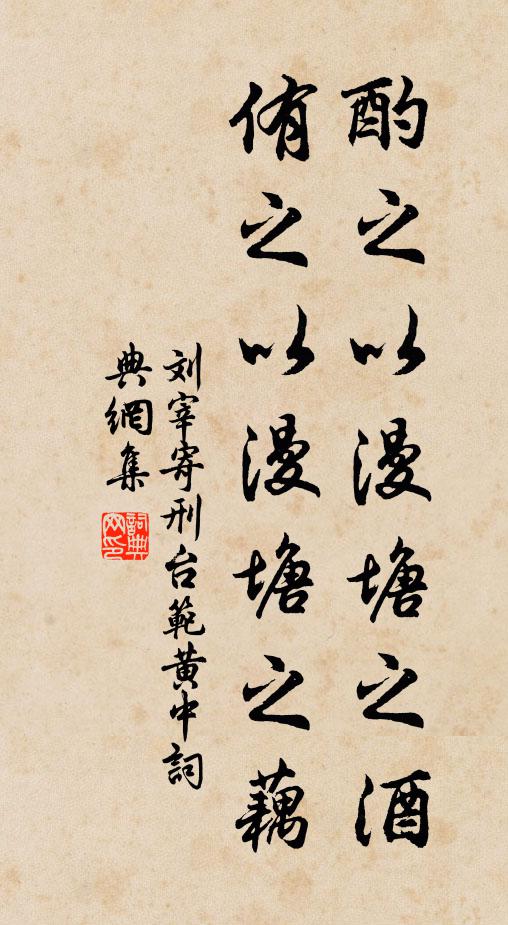 酌之以漫塘之酒
侑之以漫塘之藕
刘宰寄刑台範黄中詞
典網集
詞典网印